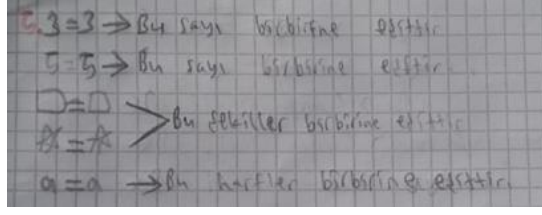 5. 3=3 → Bu sayı birbirine eşittir.
5=5 → Bu sayı birbirine eşittir.
□=□
☆=☆ > Bu şekiller birbirine eşittir.
a=a → Bu harfler birbirine eşittir.